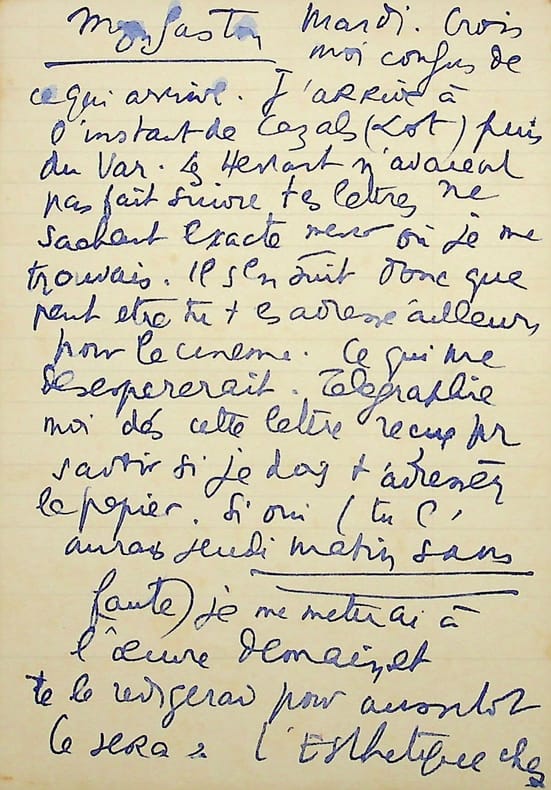 Mon Gaston Mardi. Crois
moi confus de
ce qui arrive. J'arrive à
l'instant de Cazals (Lot) puis
du Var. Les n'avaient
pas fait suivre tes lettres ne
sachant exactement où je me
trouvais. Il s'en suit donc que
peut etre tu t'es adressé ailleurs
pour le cinema. Ce qui me
desespererait. Telegraphie
moi dés cette lettre reçue pr
savoir si je dois t'adresser
le papier. Si oui (tu l'
auras jeudi matin sans
faute) je me mettrai à
l'œuvre demain et
te le redigerai pour aussitot
l'Esthetique chez